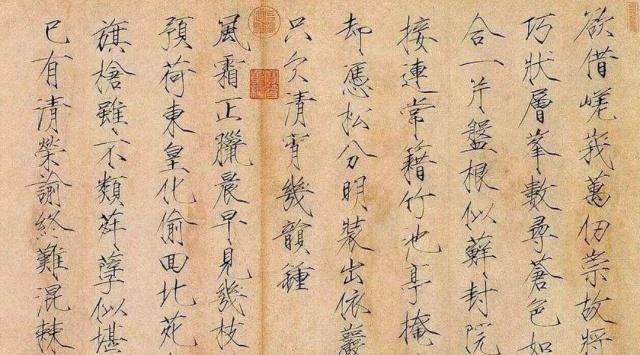 欲借嵯峩萬仞崇故將
巧狀層峯數尋蒼色如
合一片盤根似蘚封院
接連常籍竹池亭掩
却憑松分明裝出依巖
只欠清宵幾韻鍾
風霜正臘晨早見幾枝
預荷東皇化偷回北苑
旗槍雖不類荈孽似堪
已有清榮諭終難混棘